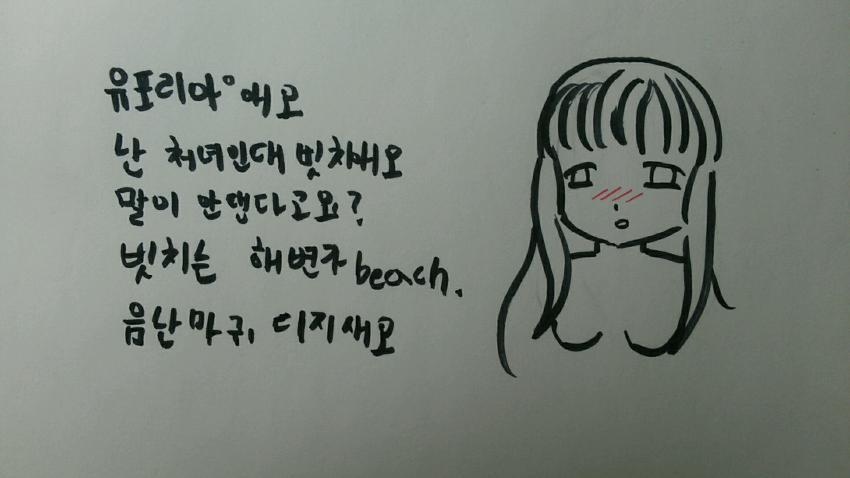 유포리아°에요
난 처녀인대 빗차에요
말이 안댄다고요?
빗치는 해변가 beach.
음난마귀, 디지새요